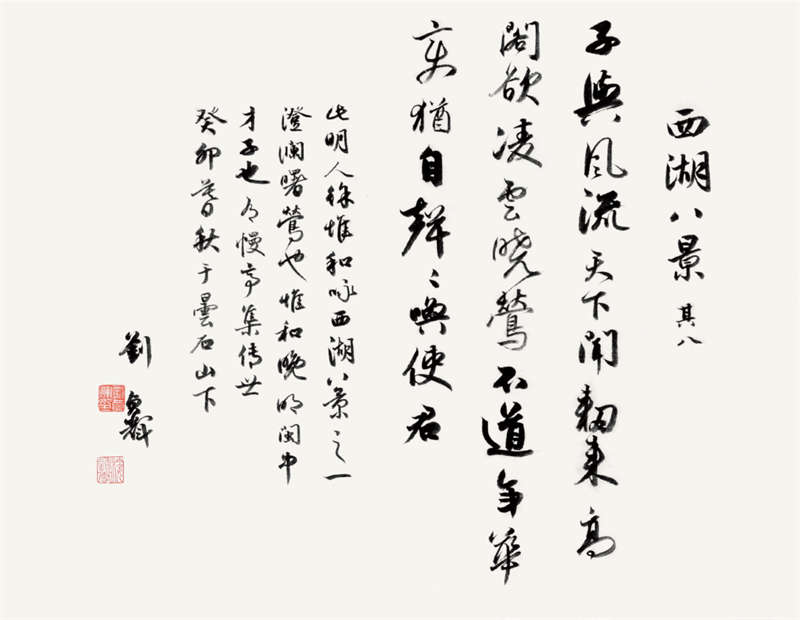 西湖八景 其八
子與風流天下聞來高
閣欲凌雲曉鶯不道年華
变猶自聲〻喚使君
此明人徐惟和咏西湖八景之一
澄瀾曙鶯也惟和晚明閩中
才子也有幔亭集传世
癸卯暮秋于曇石山下
劉